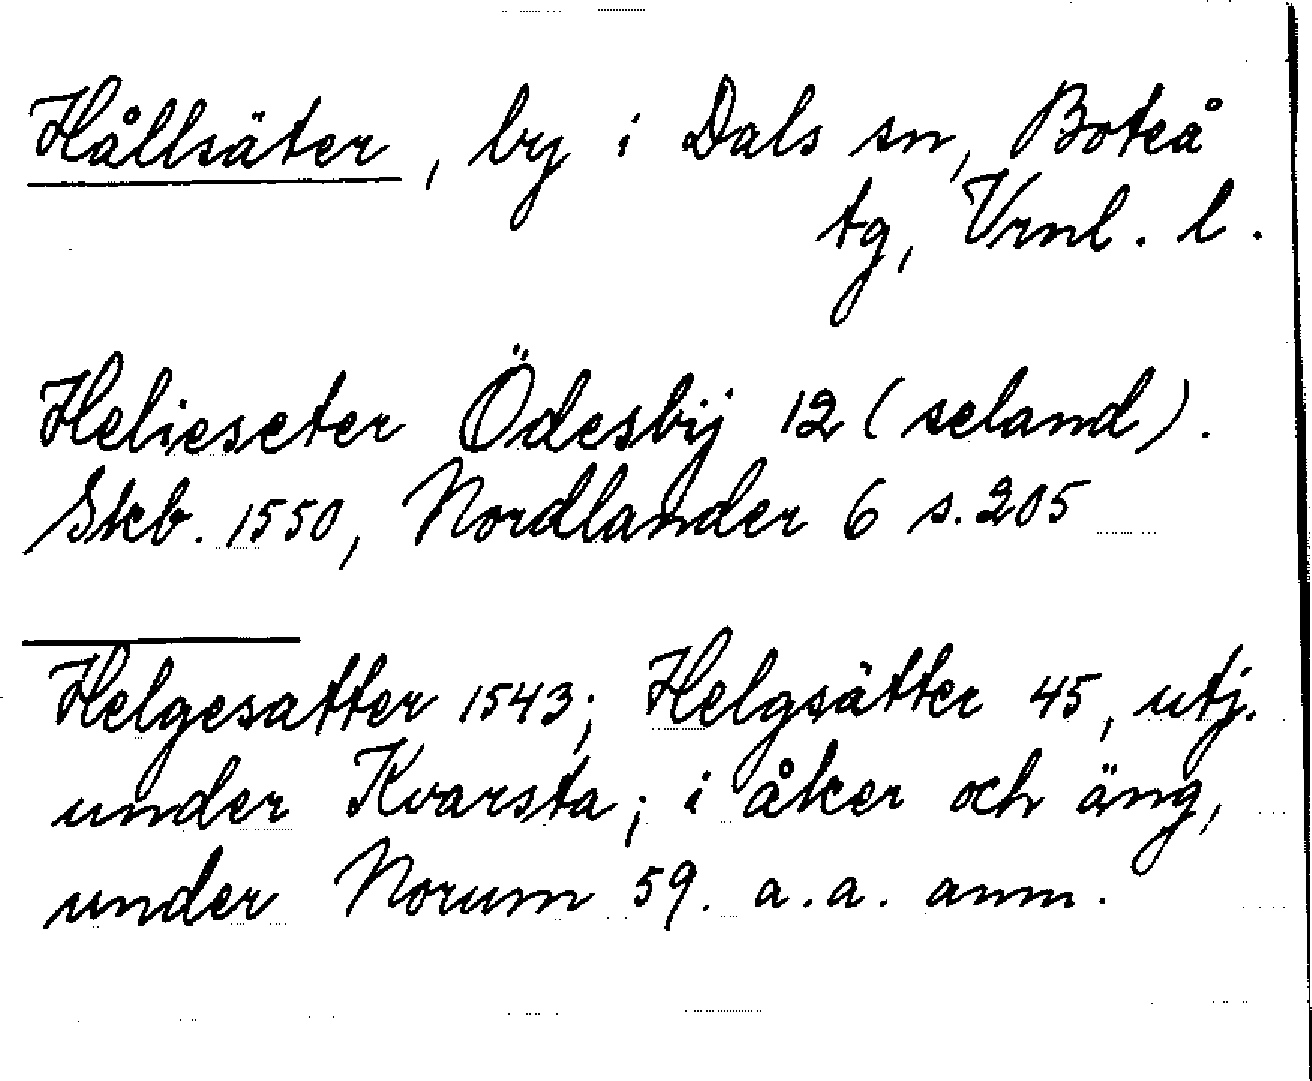 Hållsäter, by i Dals sn, Boteå
tg, Vrnl. l.
Helieseter Ödesbÿ 12 (seland).
Skb. 1550, Nordlander 6 s. 205
Helgesatter 1543; Helgsätter 45, utj.
under Kvarsta; i åker och äng,
under Norum 59. a.a. anm.